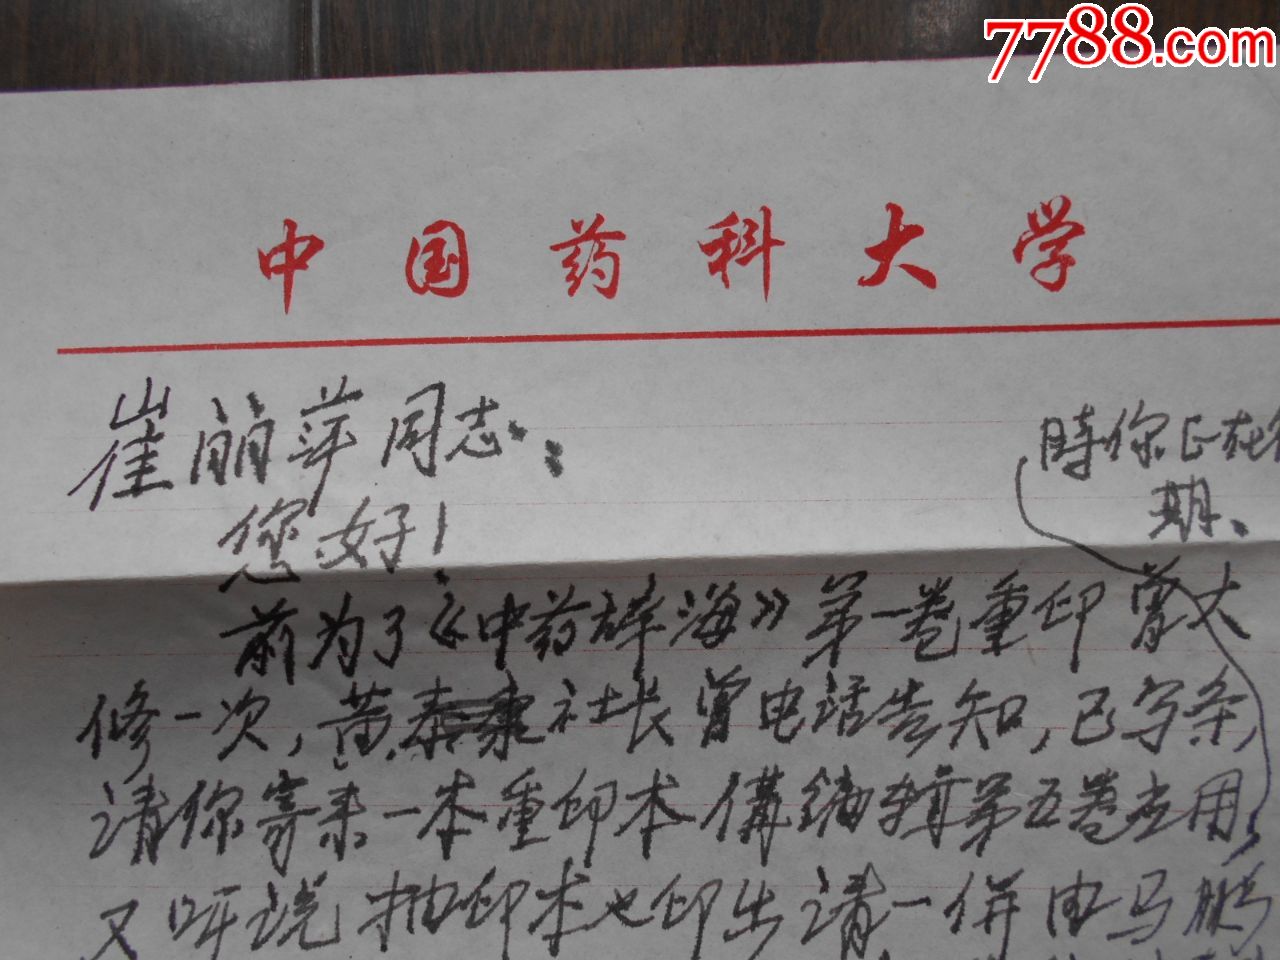 7788.com
中国药科大学
崔丽萍同志:
您好!
時你正在
期、
前为了《中药辞海》第一卷重印曾大
修一次,黄泰康社长曾电话告知,已写条
请你寄来一本重印本備编辑第五卷之用,
又听说抽印本也印出请一併由马鹏